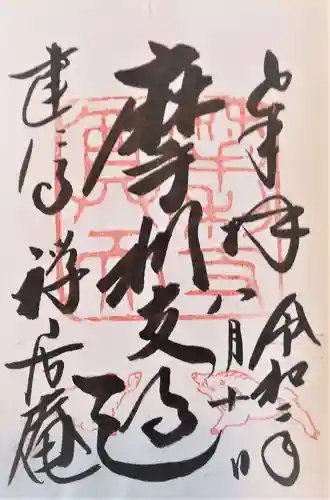 奉拝
令和二年
八月十日
摩利支天
建仁寺
禅居庵